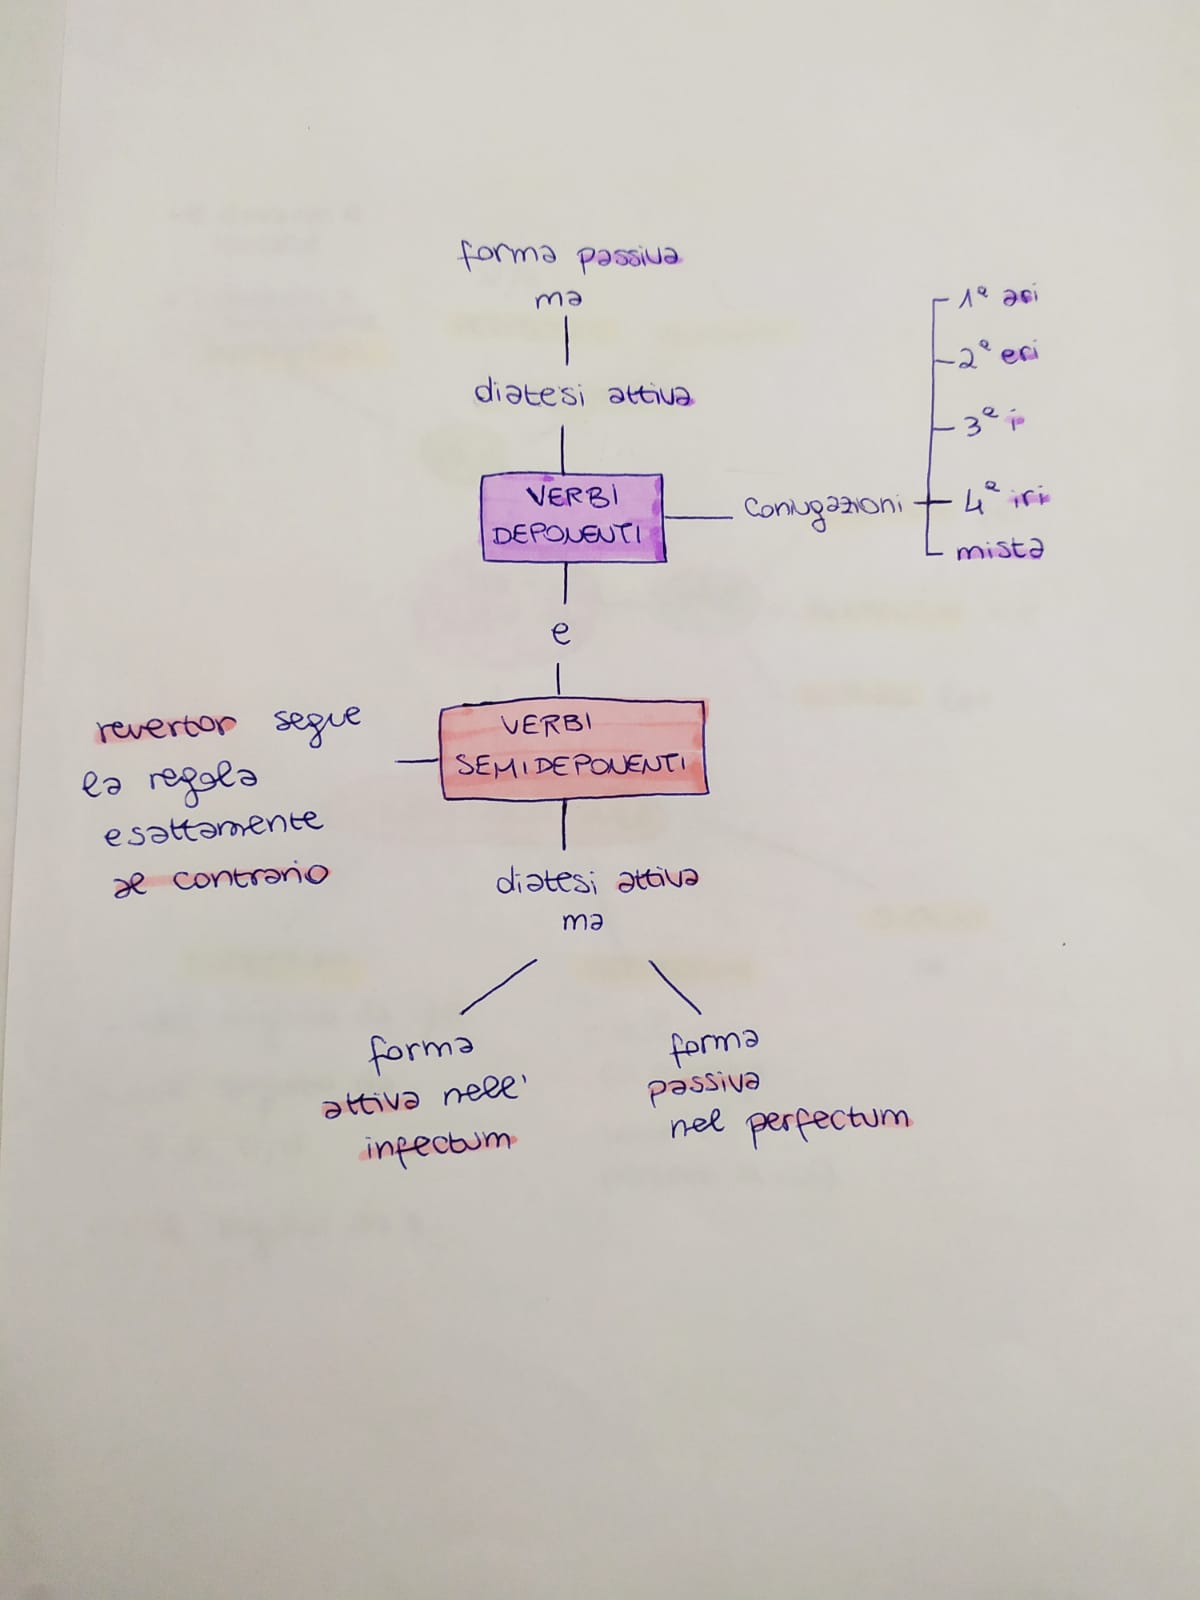 forma passiva
ma
diatesi attiva
VERBI
DEPONENTI
Coniugazioni
1ª ari
2ª eri
3ª i
4ª iri
mista
e
VERBI
SEMIDEPONENTI
revertor segue
la regola
esattamente
al contrario
diatesi attiva
ma
forma
attiva nell'
infectum
forma
passiva
nel perfectum